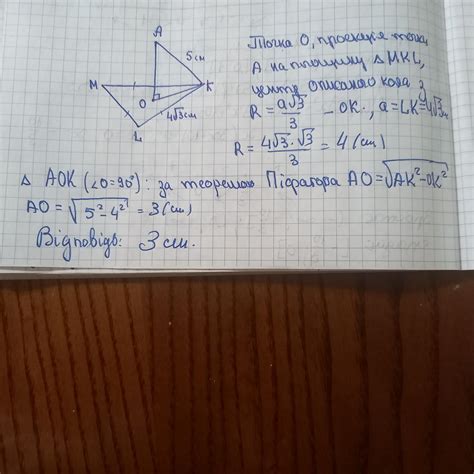 A
5 см
M
O
K
4√3 см
L
Точка O, проекція точки
A на площину △ MKL,
центр описаного кола з
R = a√3/3 - OK, a = LK = 4√3 см
R = 4√3·√3/3 = 4 (см)
△ AOK (∠O=90°): за теоремою Піфагора AO = √AK²-OK²
AO = √5²-4² = 3 (см)
Відповідь: 3 см.